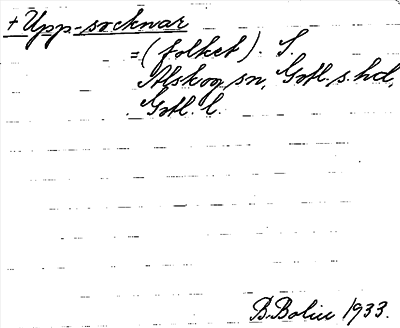 + Upp-socknar
=(folket). S.
Alskog sn, Gotl. s. hd,
Gotl. l.
B. Bolin 1933.